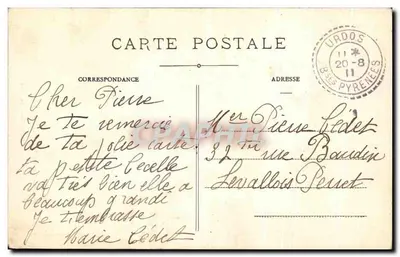 CARTE POSTALE
URDOS
11 *
20-8
11
PYRÉNÉES
CORRESPONDANCE
ADRESSE
Cher Pierre
Je te remercie
de ta jolie carte
ta petite
va très bien elle a
beaucoup grandi
Je t'embrasse
Marie Cédet
Mer Pierre Cédet
32 rue Baudin
Levallois Perret